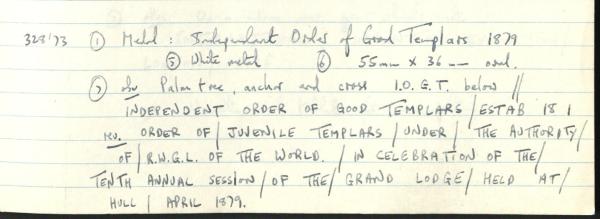 328'73 ① Medal : Independent Order of Good Templars 1879
⑤ White metal ⑥ 55mm x 36mm oval.
⑦ obv Palm tree, anchor and cross I.O.G.T. below //
INDEPENDENT ORDER OF GOOD TEMPLARS / ESTAB 18 1
rev. ORDER OF / JUVENILE TEMPLARS / UNDER / THE AUTHORITY /
OF / R.W.G.L. OF THE WORLD. / IN CELEBRATION OF THE /
TENTH ANNUAL SESSION / OF THE / GRAND LODGE / HELD AT /
HULL / APRIL 1879.